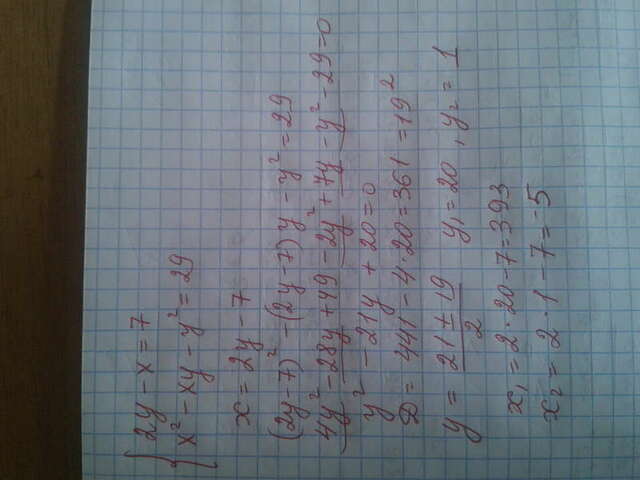 { 2y - x = 7
x² - xy - y² = 29
x = 2y - 7
(2y-7)² - (2y-7)y - y² = 29
4y² - 28y + 49 - 2y² + 7y - y² - 29 = 0
y² - 21y + 20 = 0
D = 441 - 4·20 = 361 = 19²
y = (21 ± 19)/2 y₁ = 20, y₂ = 1
x₁ = 2·20 - 7 = 393
x₂ = 2·1 - 7 = -5